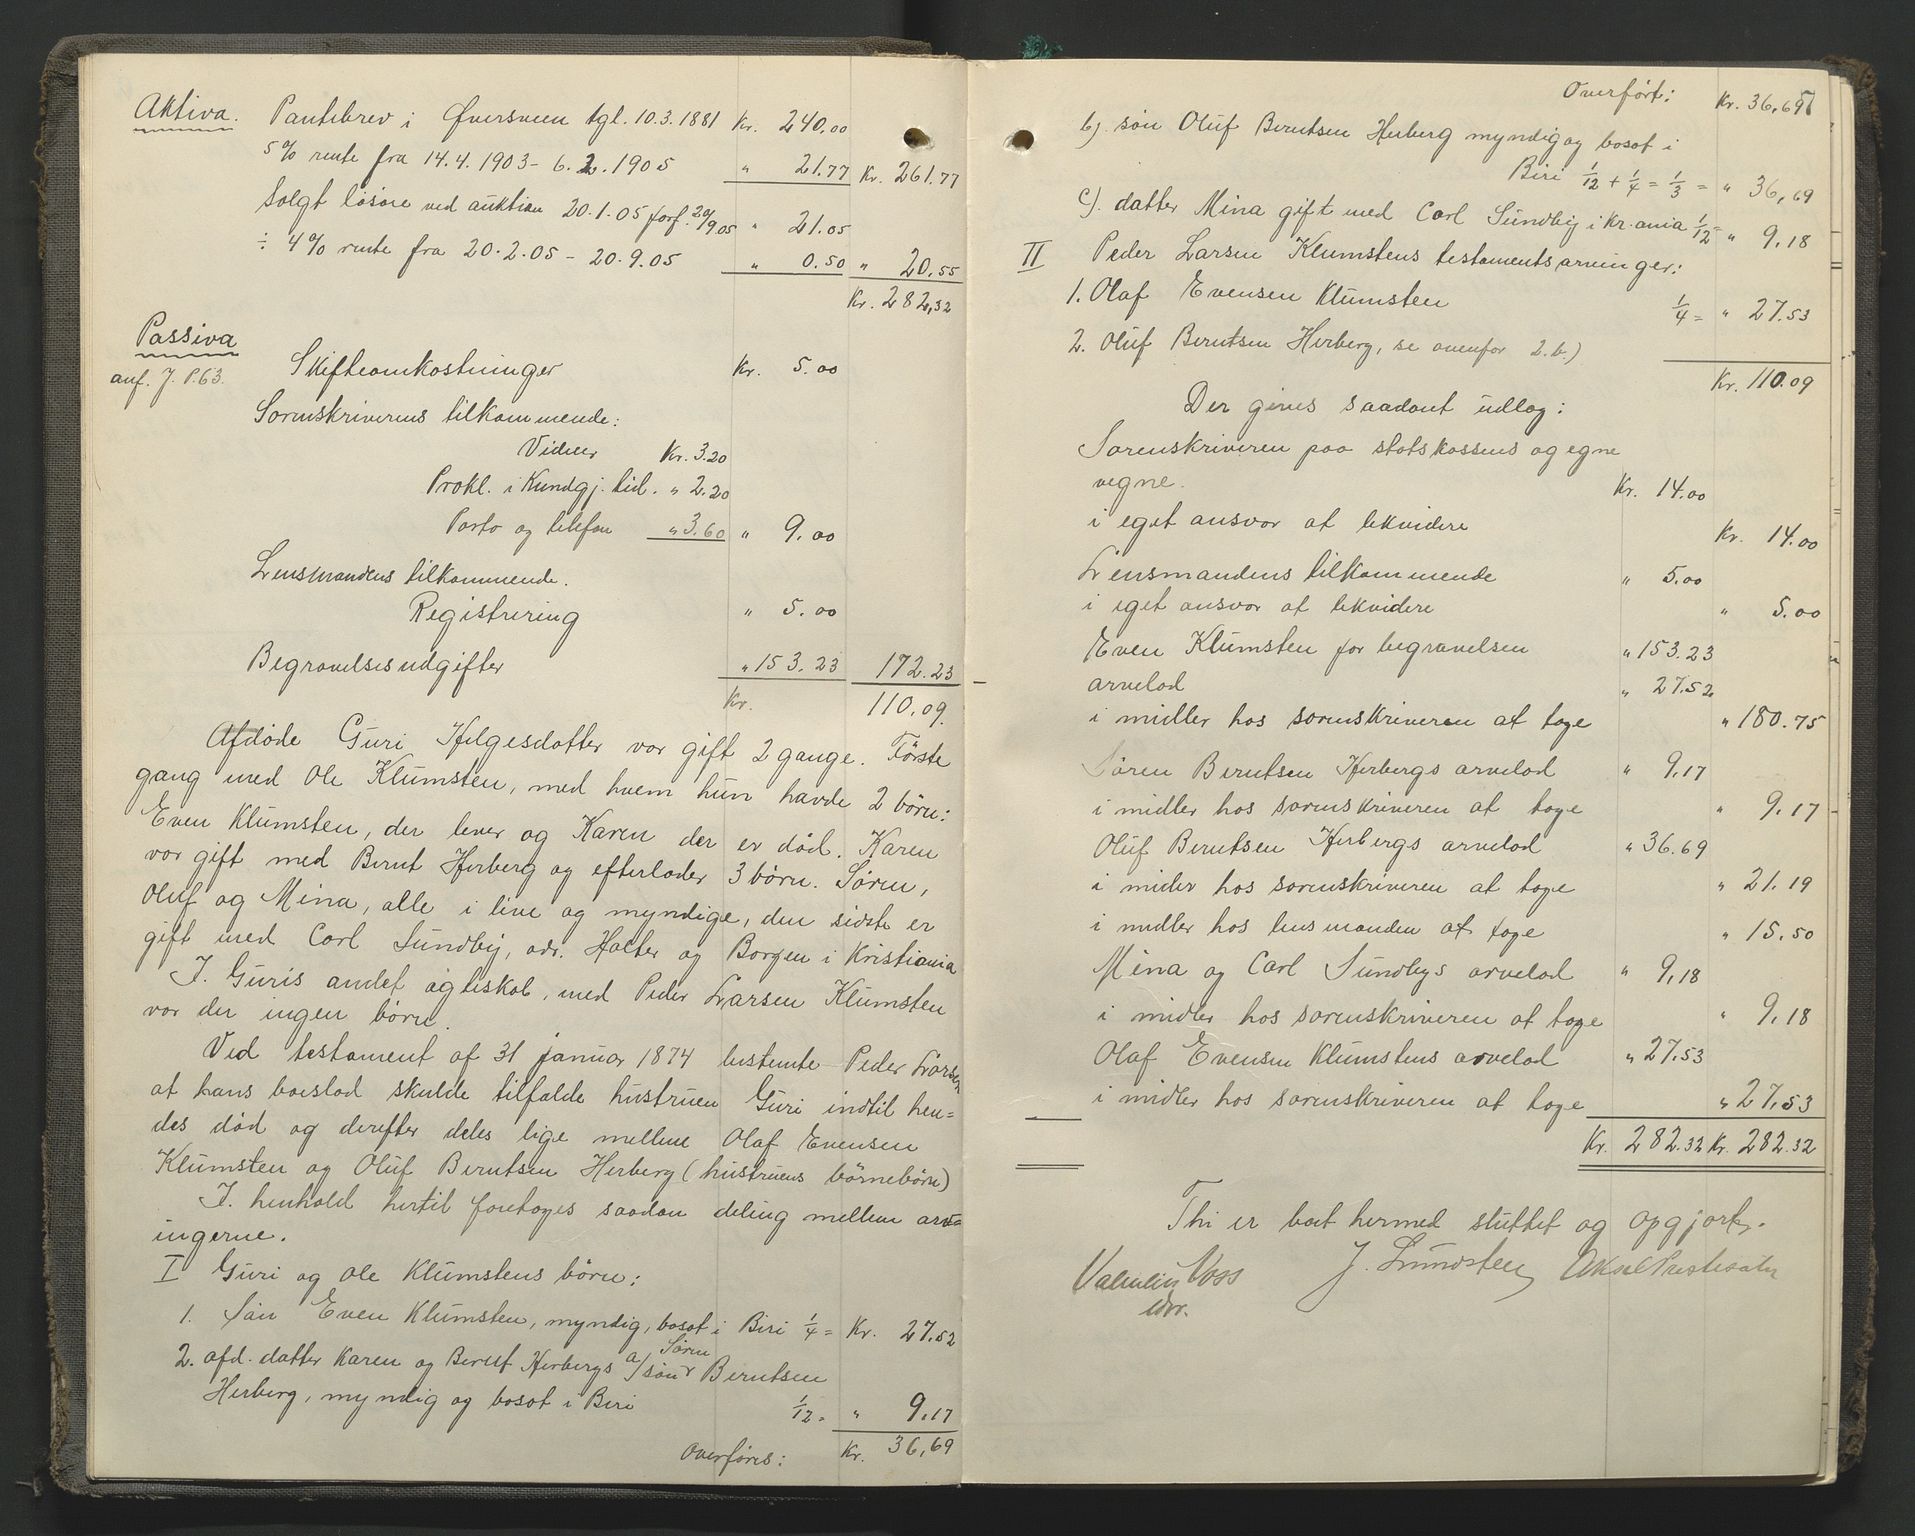 Aktiva. Pantebrev i Øversveen tgl. 10.3.1881 Kr. 240.00
5% rente fra 14.4.1903 - 6.2.1905 " 21.77 Kr. 261.77
Solgt løsøre ved auktion 20.1.05 forf. 20/9 05 " 21.05
÷ 4% rente fra 20.2.05 - 20.9.05 " 0.50 " 20.55
Kr. 282,32
Passiva
anf. J. P. 63.
Skifteomkostninger Kr. 5.00
Sorenskriverens tilkommende:
Videre Kr. 3.20
Prokl. i Kundgj. tid. " 2.20
Porto og telefon " 3.60 " 9.00
Lensmandens tilkommende.
Registrering " 5.00
Begravelsesudgifter " 153.23 172.23
Kr. 110.09.
Afdøde Guri Helgesdatter var gift 2 gange. Første
gang med Ole Klumsten, med hvem hun havde 2 børn:
Even Klumsten, der lever og Karen der er død. Karen
var gift med Bernt Herberg og efterlader 3 børn. Søren,
Oluf og Mina, alle i live og myndige, den sidste er
gift med Carl Sundby, adr. Halter og Borgen i Kristiania
I Guris andet ægteskab, med Peder Larsen Klumsten
var der ingen børn.
Ved testament af 31 januar 1874 bestemte Peder Larsen
at hans boeslod skulde tilfalde hustruen Guri indtil hen=
des død og derefter deles lige mellem Olaf Evensen
Klumsten og Oluf Berntsen Herberg (hustruens børnebørn)
I henhold hertil foretages saadan deling mellem arv
ingerne.
I Guri og Ole Klumstens børn:
1. Søn Even Klumsten, myndig, bosat i Biri 1/4 = Kr. 27.52
2. afd. datter Karen og Bernt Herbergs a/ søn Søren Berntsen
Herberg, myndig og bosat i Biri 1/12 = " 9.17
Overføres: Kr. 36,69
Overført: Kr. 36,69
b). søn Oluf Berntsen Herberg myndig og bosat i
Biri 1/12 + 1/4 = 1/3 = " 36,69
c). datter Mina gift med Carl Sundby i Kr.ania 1/12 = " 9.18
II Peder Larsen Klumstens testamentsarvinger:
1. Olaf Evensen Klumsten 1/4 = " 27.53
2. Oluf Berntsen Herberg, se ovenfor 2.b.)
Kr. 110.09
Der gives saadant udlæg:
Sorenskriveren paa statskassens og egne
vegne. Kr. 14.00
i eget ansvar at likvidere Kr. 14.00
Lensmandens tilkommende " 5.00
i eget ansvar at likvidere " 5.00
Even Klumsten for begravelsen " 153.23
arvelod " 27.52
i midler hos sorenskriveren at tage " 180.75
Søren Berntsen Herbergs arvelod " 9.17
i midler hos sorenskriveren at tage " 9.17
Oluf Berntsen Herbergs arvelod " 36.69
i midler hos sorenskriveren at tage " 21.19
i midler hos lensmanden at tage " 15.50
Mina og Carl Sundbys arvelod " 9,18
i midler hos sorenskriveren at tage " 9.18
Olaf Evensen Klumstens arvelod " 27.53
i midler hos sorenskriveren at tage " 27.53
Kr. 282.32 Kr. 282.32
Thi er boet hermed sluttet og opgjort.
Valentin Voss J. Lundsten Aksel Prestesæter